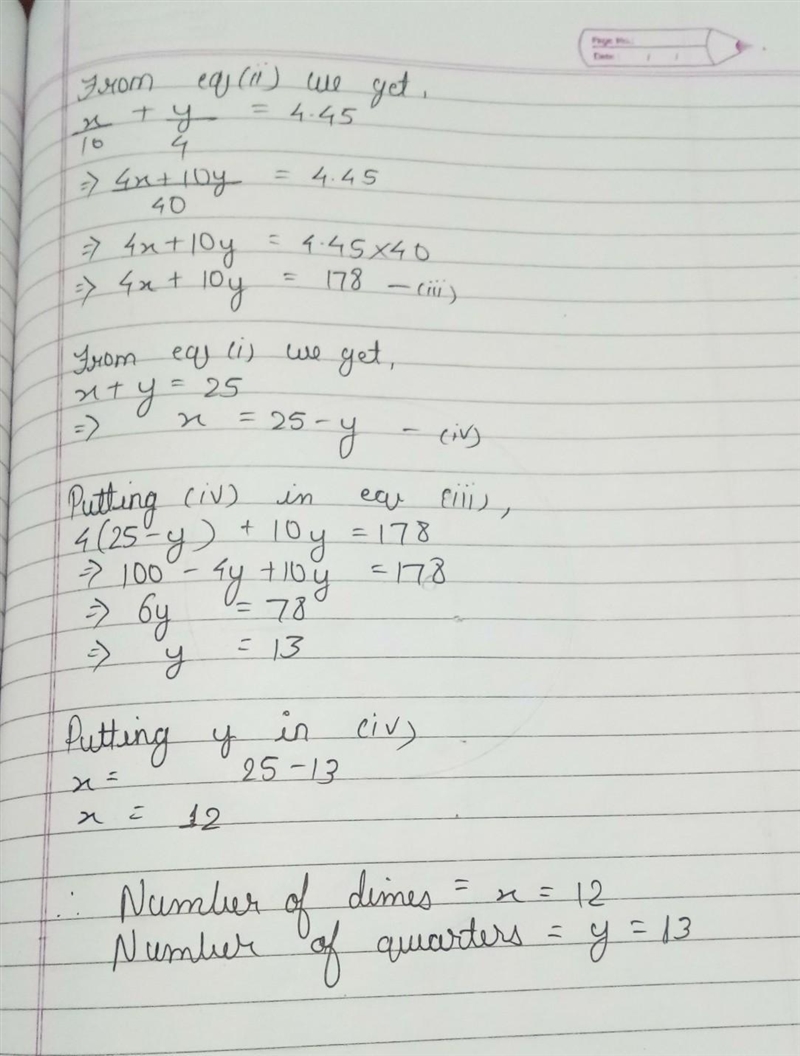 Page No.:
Date: / /
From eq (ii) we get,
x/10 + y/4 = 4.45
⇒ 4x+10y/40 = 4.45
⇒ 4x+10y = 4.45×40
⇒ 4x + 10y = 178 – (iii)
From eq (i) we get,
x + y = 25
⇒ x = 25 – y – (iv)
Putting (iv) in eq (iii),
4(25-y) + 10y = 178
⇒ 100 - 4y + 10y = 178
⇒ 6y = 78
⇒ y = 13
Putting y in (iv)
x = 25-13
x = 12
∴ Number of dimes = x = 12
Number of quarters = y = 13